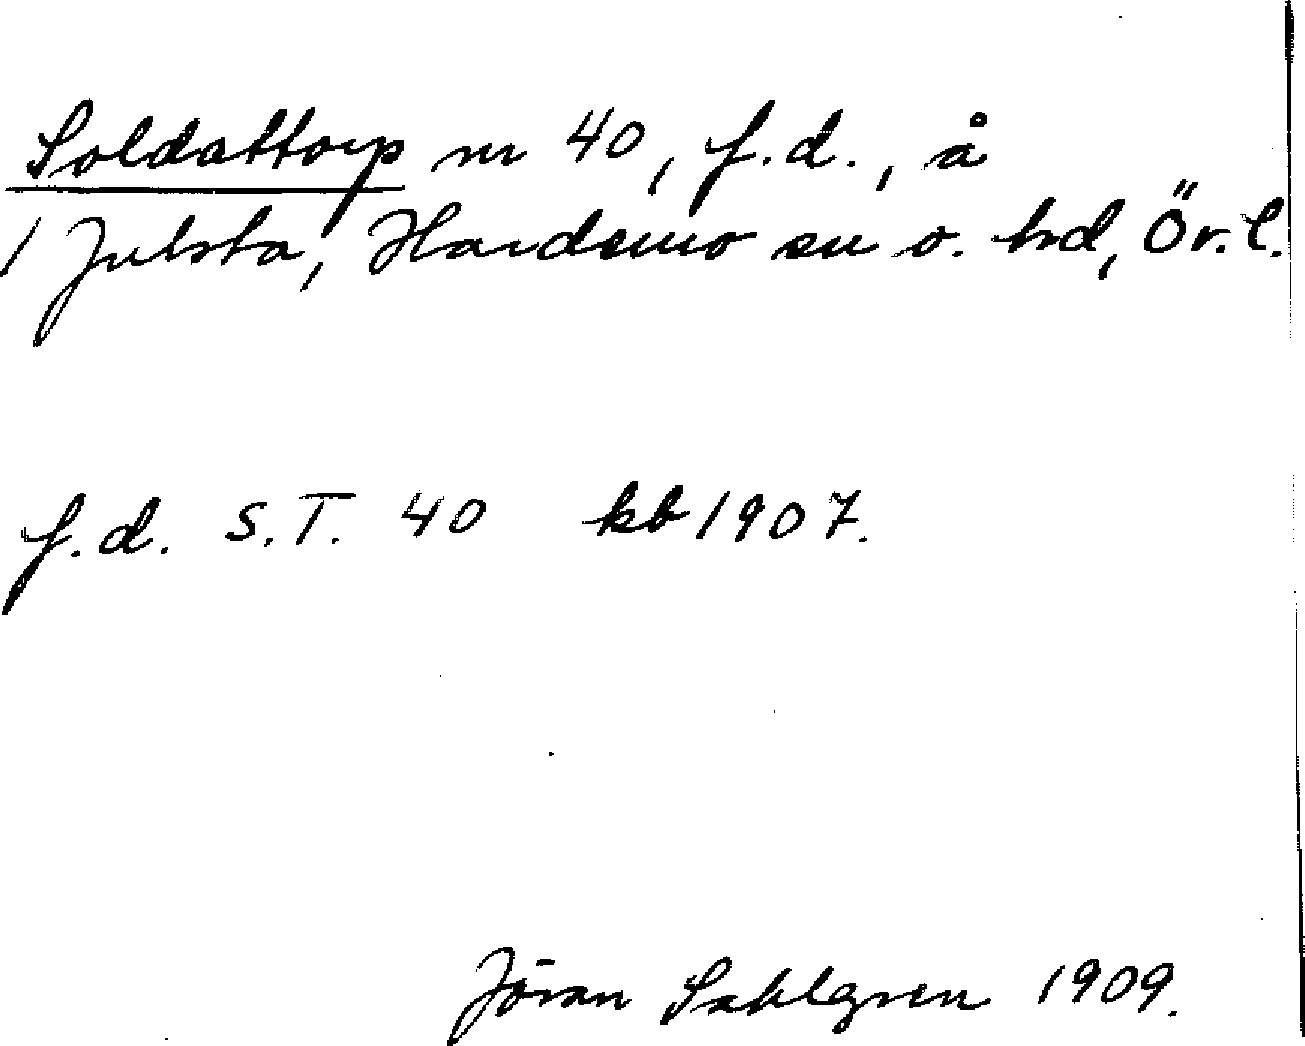 Soldattorp nr 40, f.d., å
1 Julsta, Hardemo sn o. hd, Ör. l.
f.d. S.T. 40 kb 1907.
Jöran Sahlgren 1909.